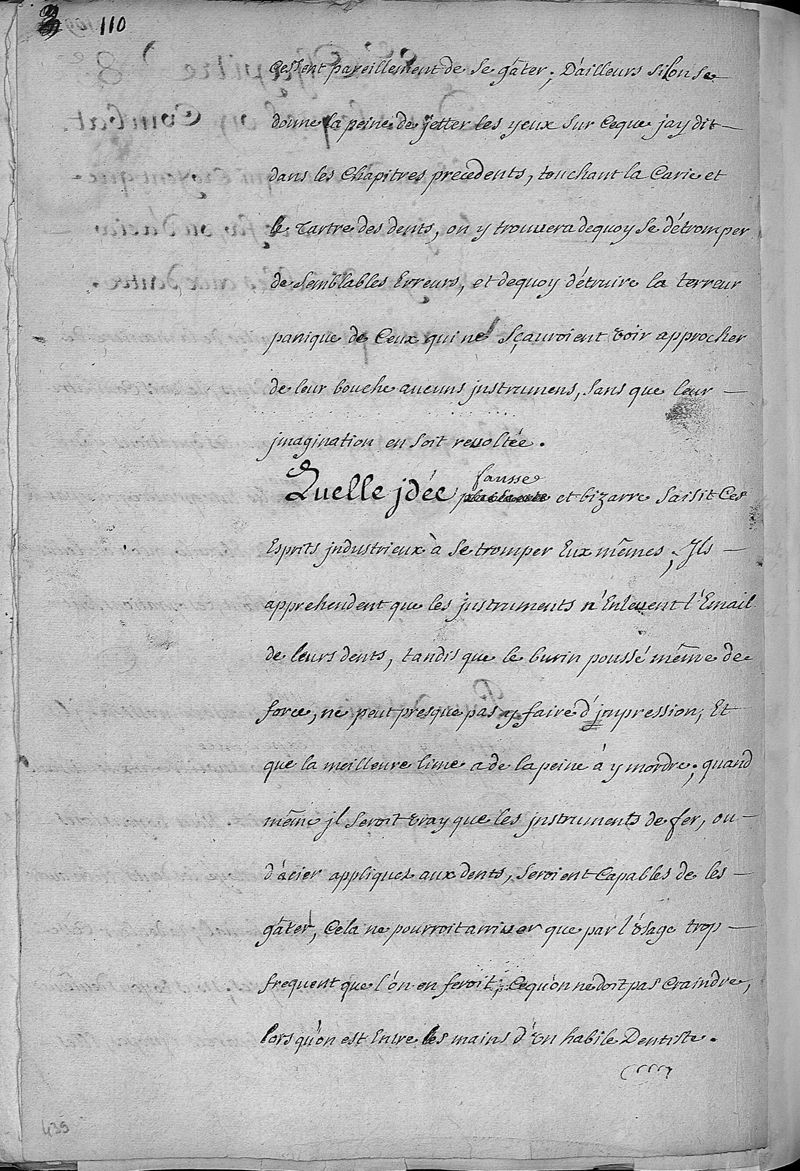 110
cessent pareillement de se gâter; D'ailleurs si lon se
donne la peine de jetter les yeux sur ce que jay dit
dans les Chapitres precedents, touchant la Carie et
le Tartre des dents, on y trouvera dequoy se détromper
de semblables Erreurs, et dequoy détruire la terreur
panique de Ceux qui ne sçauroient voir approcher
de leur bouche aucuns jnstrumens, sans que leur
jmagination en soit revoltée.
fausse
Quelle jdée et bizarre saisit Ces
Esprits jndustrieux à se tromper Eux mêmes; Ils
apprehendent que les jnstruments n'Enlevent l'Email
de leurs dents, tandis que le burin poussé même de
force, ne peut presque pas y faire d'jmpression; Et
que la meilleure lime a de la peine à y mordre; quand
même jl seroit vray que les jnstruments de fer, ou
d'acier appliquez aux dents, seroient Capables de les
gâter, Cela ne pourroit arriver que par l'Vsage trop
frequent que l'ôn en feroit; Cequ'on ne doit pas Craindre,
lorsqu'on est Entre les mains d'Vn habile Dentiste.
439